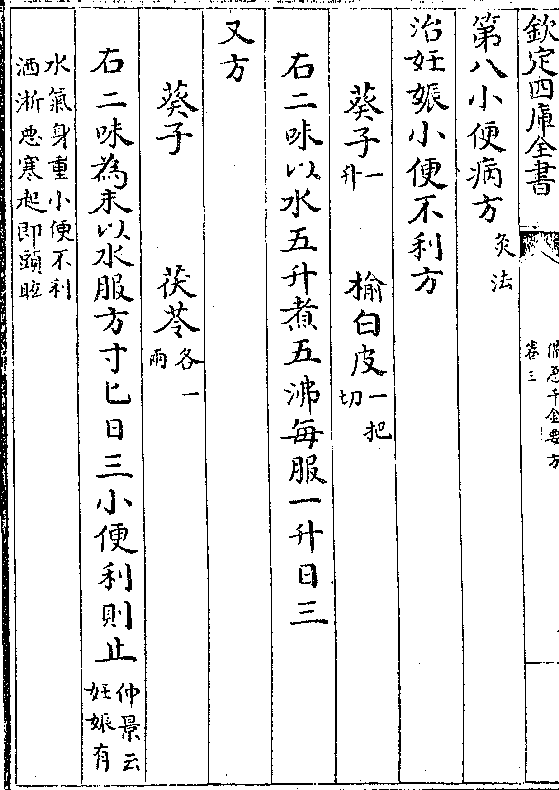 欽定四庫全書
備急千金要方
卷三
第八小便病方灸法
治妊娠小便不利方
葵子一升 榆白皮一把切
右二味以水五升煮五沸每服一升日三
又方
葵子 茯苓各一兩
右二味為末以水服方寸匕日三小便利則止仲景云妊娠有
水氣身重小便不利洒淅惡寒起即頭眩